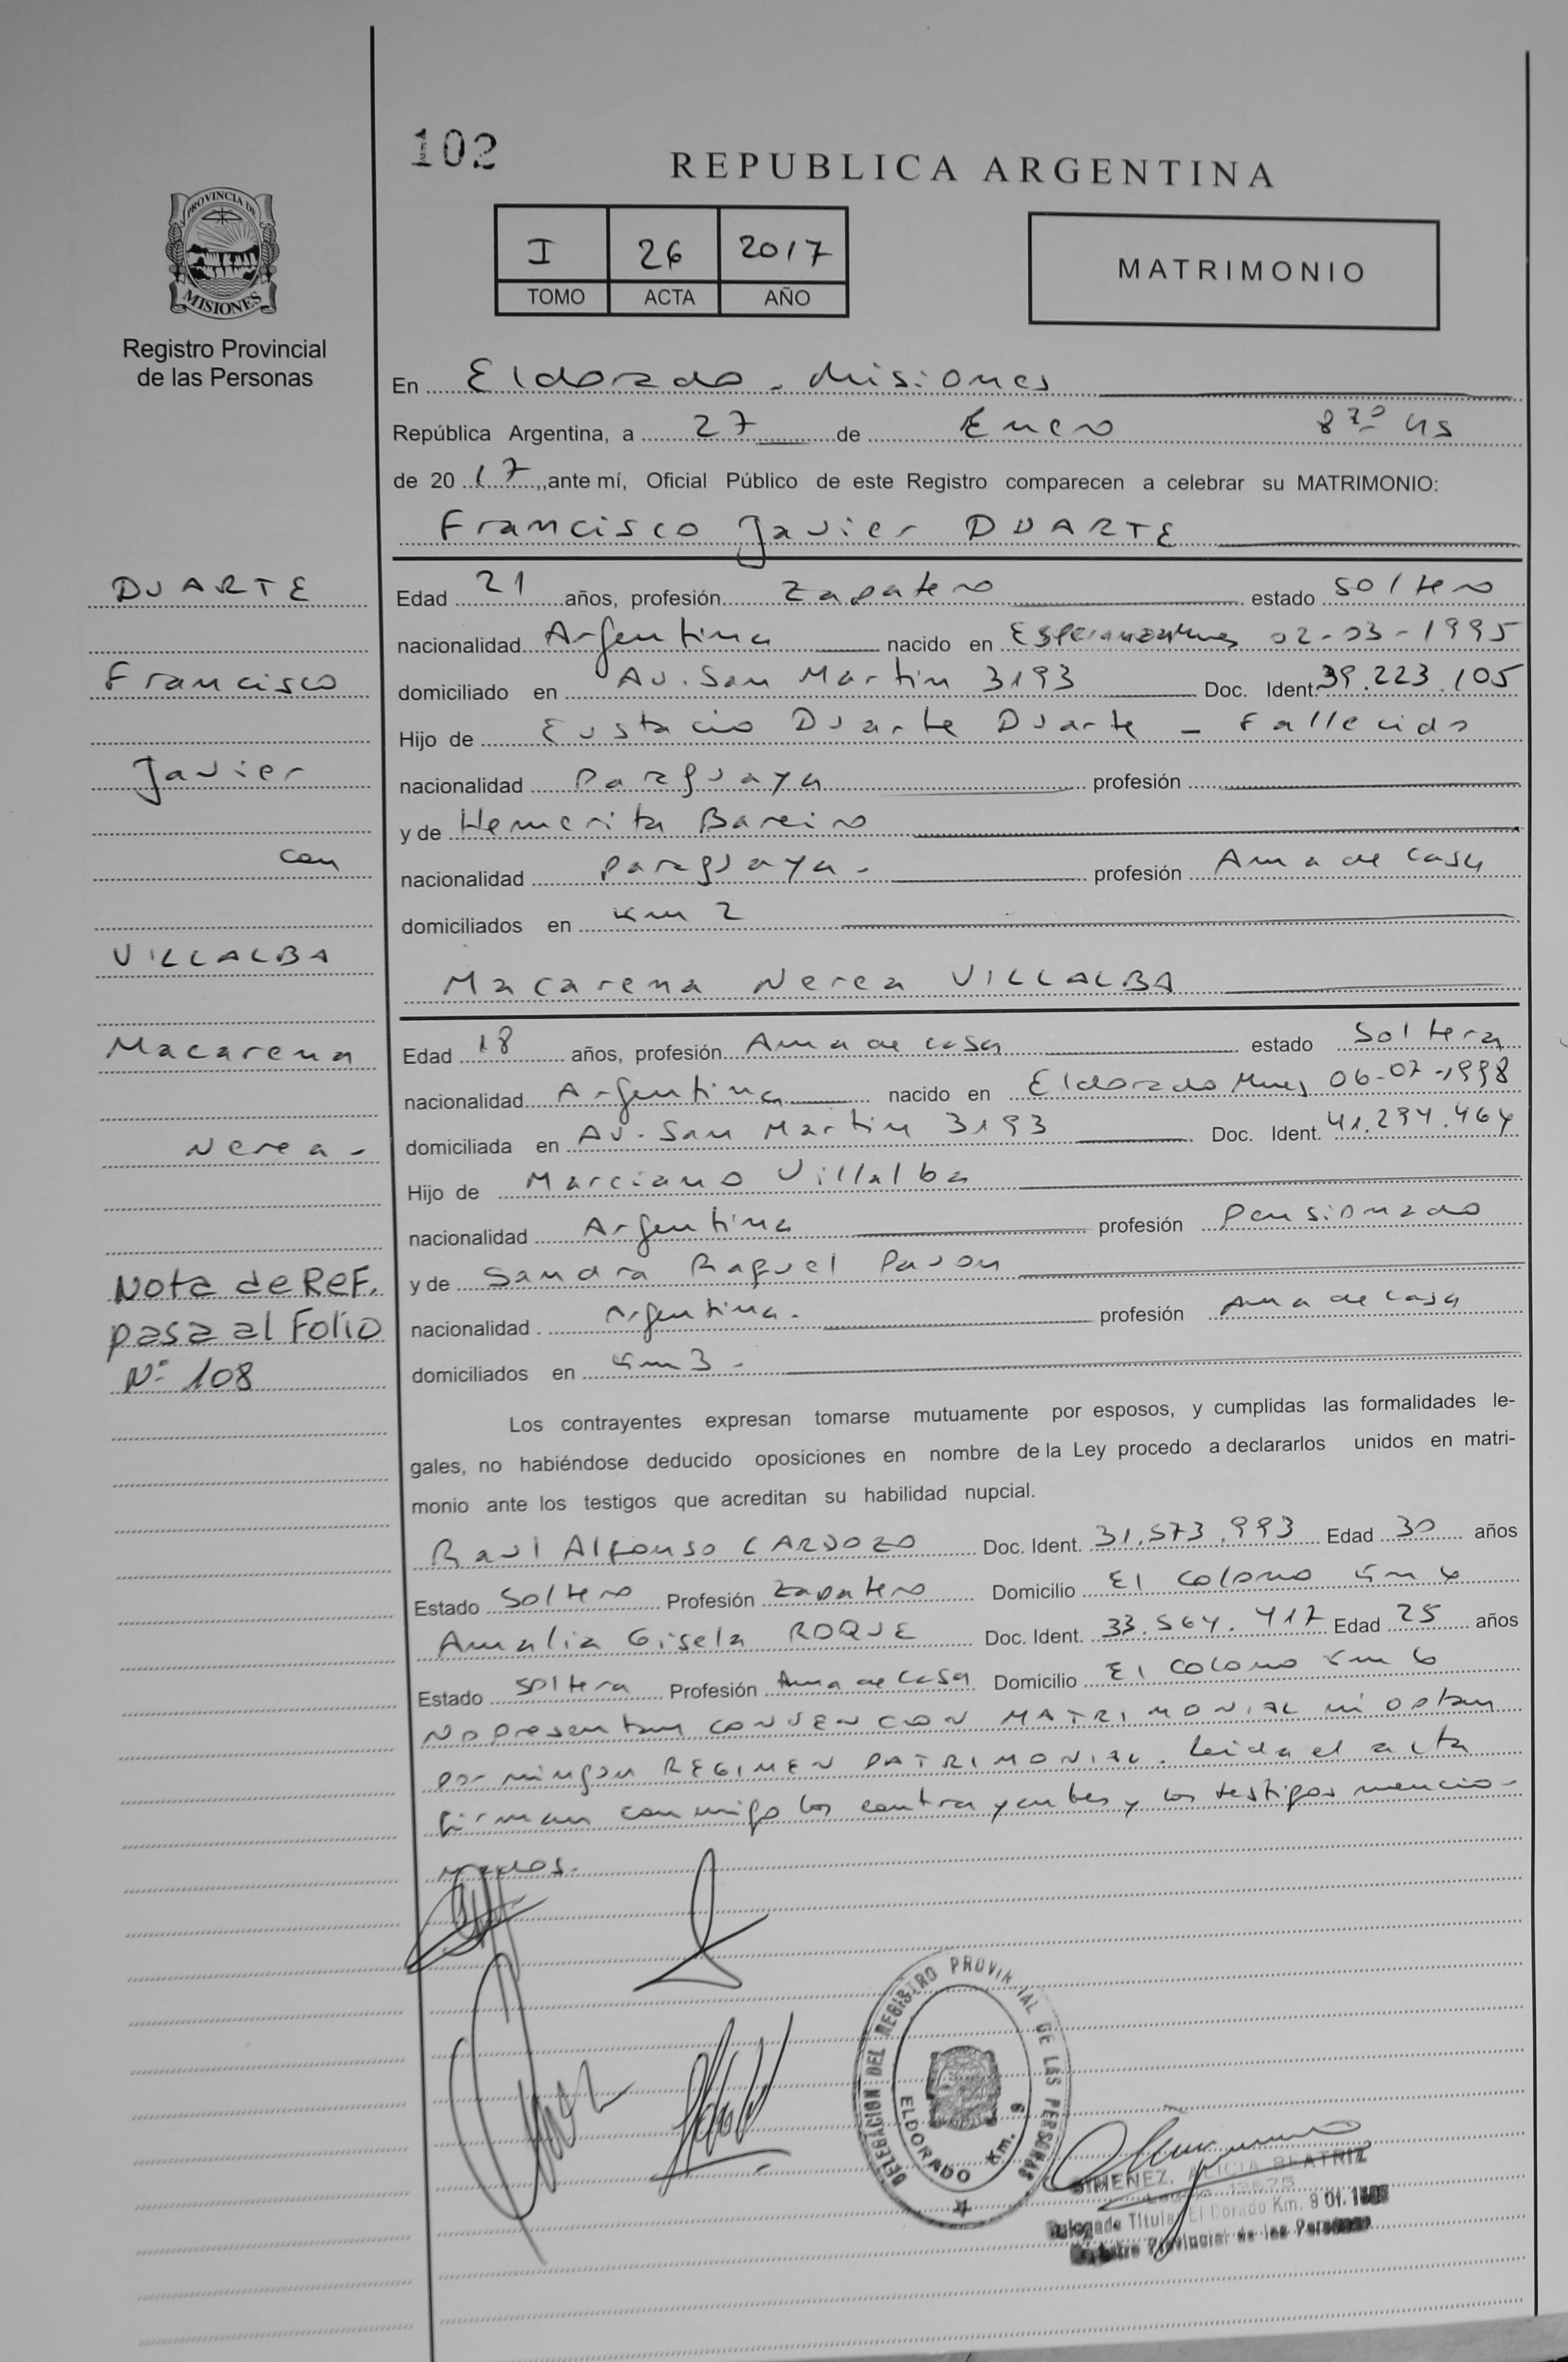 102
REPUBLICA ARGENTINA
PROVINCIA DE
MISIONES
Registro Provincial
de las Personas
I 26 2017
TOMO ACTA AÑO
MATRIMONIO
En Eldorado - Misiones
República Argentina, a 27 de Enero 8 30 Hs
de 20 17, ante mí, Oficial Público de este Registro comparecen a celebrar su MATRIMONIO:
Francisco Javier DUARTE
DUARTE
Francisco
Javier
con
VILLALBA
Macarena
Nerea -
Nota de REF.
pasa al Folio
N° 108
Edad 21 años, profesión Zapatero estado soltero
nacionalidad Argentina nacido en Esperanza Mnes 02-03-1995
domiciliado en Av. San Martin 3193 Doc. Ident. 39.223.105
Hijo de Eustacio Duarte Duarte - Fallecido
nacionalidad paraguaya profesión
y de Hemerita Bareiro
nacionalidad paraguaya - profesión Ama de casa
domiciliados en Km 2
Macarena Nerea VILLALBA
Edad 18 años, profesión Ama de casa estado soltera
nacionalidad Argentina nacido en Eldorado Mnes 06-07-1998
domiciliada en Av. San Martin 3193 Doc. Ident. 41.294.464
Hijo de Marciano Villalba
nacionalidad Argentina profesión Pensionado
y de Sandra Raquel Pavon
nacionalidad Argentina. profesión Ama de casa
domiciliados en Km 3 -
Los contrayentes expresan tomarse mutuamente por esposos, y cumplidas las formalidades le-
gales, no habiéndose deducido oposiciones en nombre de la Ley procedo a declararlos unidos en matri-
monio ante los testigos que acreditan su habilidad nupcial.
Raul Alfonso CARDOZO Doc. Ident. 31.573.993 Edad 30 años
Estado Soltero Profesión Zapatero Domicilio El Colono Km 6
Amalia Gisela ROQUE Doc. Ident. 33.564.417 Edad 25 años
Estado soltera Profesión Ama de casa Domicilio El Colono Km 6
No presentan CONVENCION MATRIMONIAL ni optan
por ningun REGIMEN PATRIMONIAL. Leida el acta
firman conmigo los contrayentes y los testigos mencio-
nados.
DELEGACION DEL REGISTRO PROVINCIAL DE LAS PERSONAS
ELDORADO Km. 9
GIMENEZ, ALICIA BEATRIZ
Delegada Titular El Dorado Km. 9 Of.
Registro Provincial de las Personas